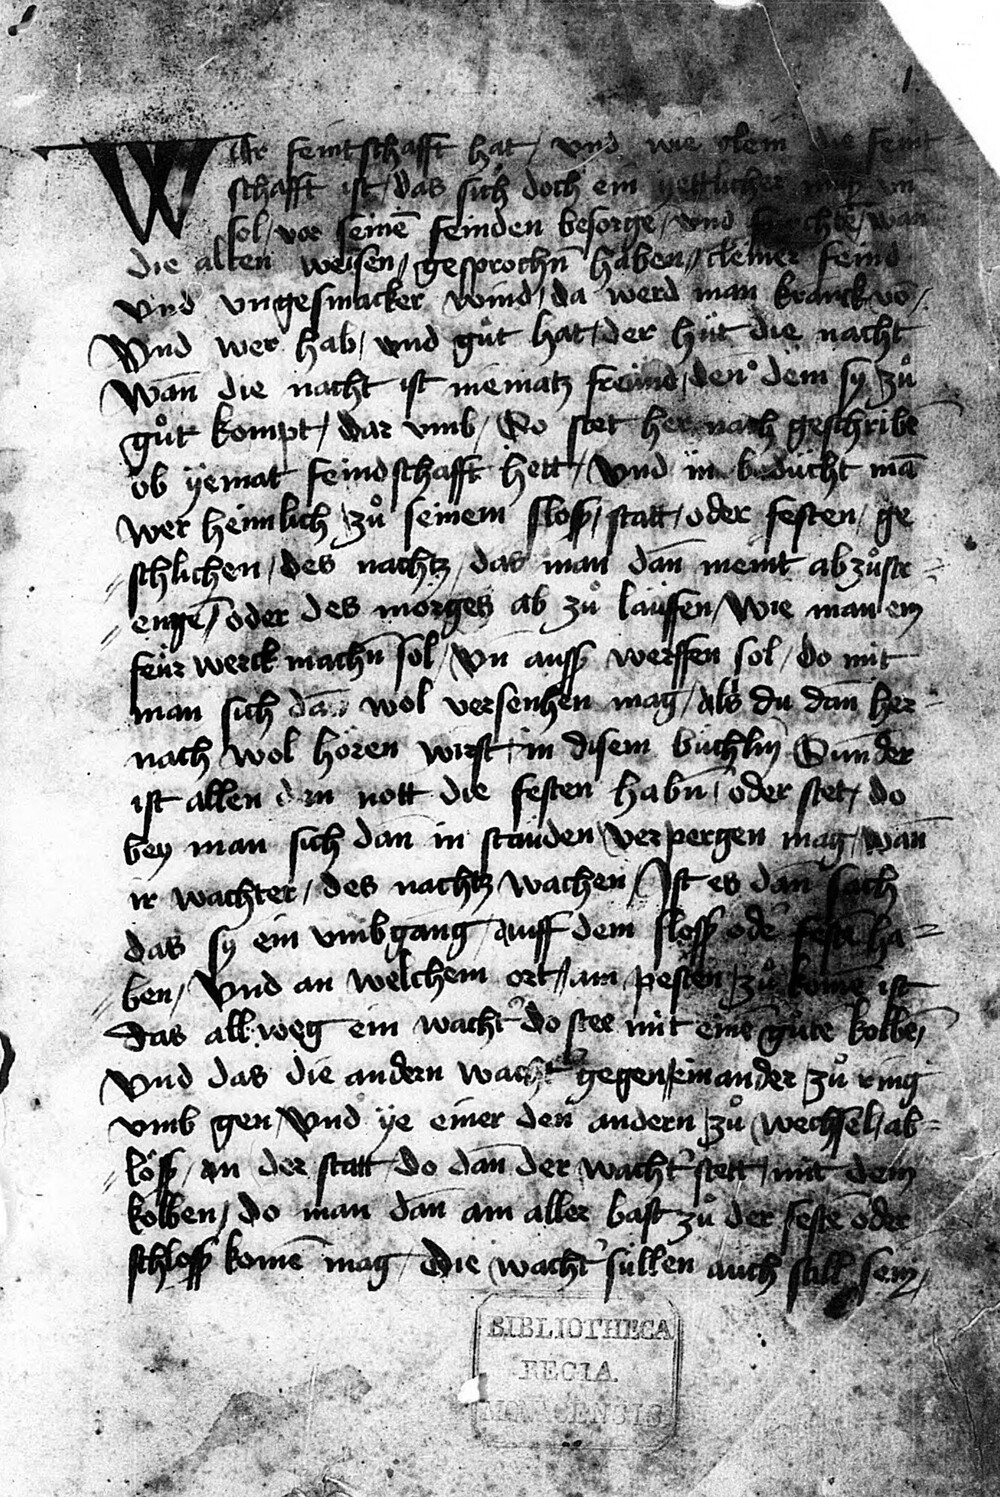 1
WEr feintschafft hat / vnd wie clein die feint
schafft ist / das sich doch ein yettlicher mag vnd
sol / vor seinē feinden besorge / vnd wan
die alten weisen / gesprochñ haben / cleiner feind
vnd vngesmacker wind / da werd man kranck võ /
Vnd wer hab / vnd gůt hat / der hüt die nacht
Wañ die nacht ist niematz freünd / den dem sy zů
gůt kompt / dar vmb / So stet her nach geschribē
ob yemat feindschafft hett / Vnd in beducht mā
wer heimlich zů seinem sloss / statt / oder festen / ge
schlichen / des nachtz / das man dañ meint abzůstr =
engē / oder des morges ab zů lauffen / Wie man ein
feür werck machñ sol / Vñ auss werffen sol / do mit
man sich dañ wol versenhen mag / Als du dañ her =
nach wol hören wirst / in disem büchlin Sunder
ist allen den nott die festen habñ / oder stet / do
bey man sich dañ in stauden verpergen mag / wañ
ir wachter / des nachtz wachen / Ist es dañ sach
das sy ein vmbgang / auff dem sloss oder festē ha =
ben / Vnd an welchem ort / am pesten zů komē ist
Das all weg ein wacht' do stee mit einē gůte kolbē /
Vnd das die andern wacht' gegen einander zů ring
vmb gen / Vnd ye einer den andern zů wechsel / ab =
löss / an der statt do dañ der wacht' stett / mit dem
kolben / do man dañ am aller bast zů der feste oder
schloss komē mag / Die wacht' süllen auch still sein /
BIBLIOTHECA
REGIA
MONACENSIS